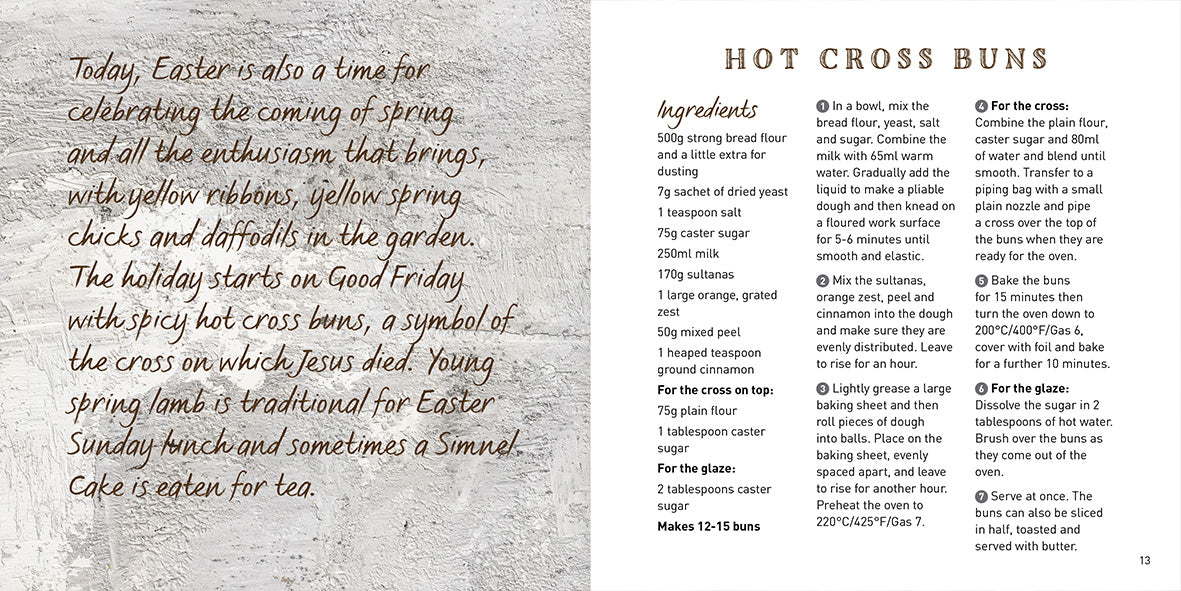 Today, Easter is also a time for
celebrating the coming of spring
and all the enthusiasm that brings,
with yellow ribbons, yellow spring
chicks and daffodils in the garden.
The holiday starts on Good Friday
with spicy hot cross buns, a symbol of
the cross on which Jesus died. Young
spring lamb is traditional for Easter
Sunday lunch and sometimes a Simnel
Cake is eaten for tea.
HOT CROSS BUNS
Ingredients
500g strong bread flour
and a little extra for
dusting
7g sachet of dried yeast
1 teaspoon salt
75g caster sugar
250ml milk
170g sultanas
1 large orange, grated
zest
50g mixed peel
1 heaped teaspoon
ground cinnamon
For the cross on top:
75g plain flour
1 tablespoon caster
sugar
For the glaze:
2 tablespoons caster
sugar
Makes 12-15 buns
1 In a bowl, mix the
bread flour, yeast, salt
and sugar. Combine the
milk with 65ml warm
water. Gradually add the
liquid to make a pliable
dough and then knead on
a floured work surface
for 5-6 minutes until
smooth and elastic.
2 Mix the sultanas,
orange zest, peel and
cinnamon into the dough
and make sure they are
evenly distributed. Leave
to rise for an hour.
3 Lightly grease a large
baking sheet and then
roll pieces of dough
into balls. Place on the
baking sheet, evenly
spaced apart, and leave
to rise for another hour.
Preheat the oven to
220°C/425°F/Gas 7.
4 For the cross:
Combine the plain flour,
caster sugar and 80ml
of water and blend until
smooth. Transfer to a
piping bag with a small
plain nozzle and pipe
a cross over the top of
the buns when they are
ready for the oven.
5 Bake the buns
for 15 minutes then
turn the oven down to
200°C/400°F/Gas 6,
cover with foil and bake
for a further 10 minutes.
6 For the glaze:
Dissolve the sugar in 2
tablespoons of hot water.
Brush over the buns as
they come out of the
oven.
7 Serve at once. The
buns can also be sliced
in half, toasted and
served with butter.
13